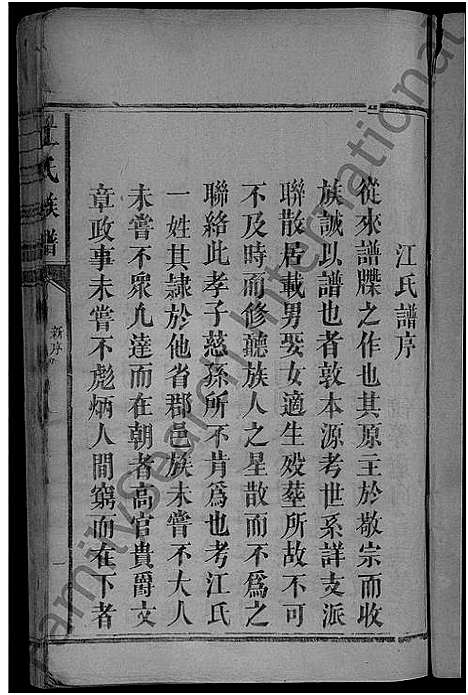 江氏譜序
從來譜牒之作也其原主於敬宗而收
族誠以譜也者敦本源考世系詳支派
聯散居載男娶女適生殁葬所故不可
不及時而修聽族人之星散而不爲之
聯絡此孝子慈孫所不肯爲也考江氏
一姓其隷於他省郡邑族未嘗不大人
未嘗不衆凡達而在朝者高官貴爵文
章政事未嘗不彪炳人間窮而在下者
江氏族譜
新序
一
FamilySearch International